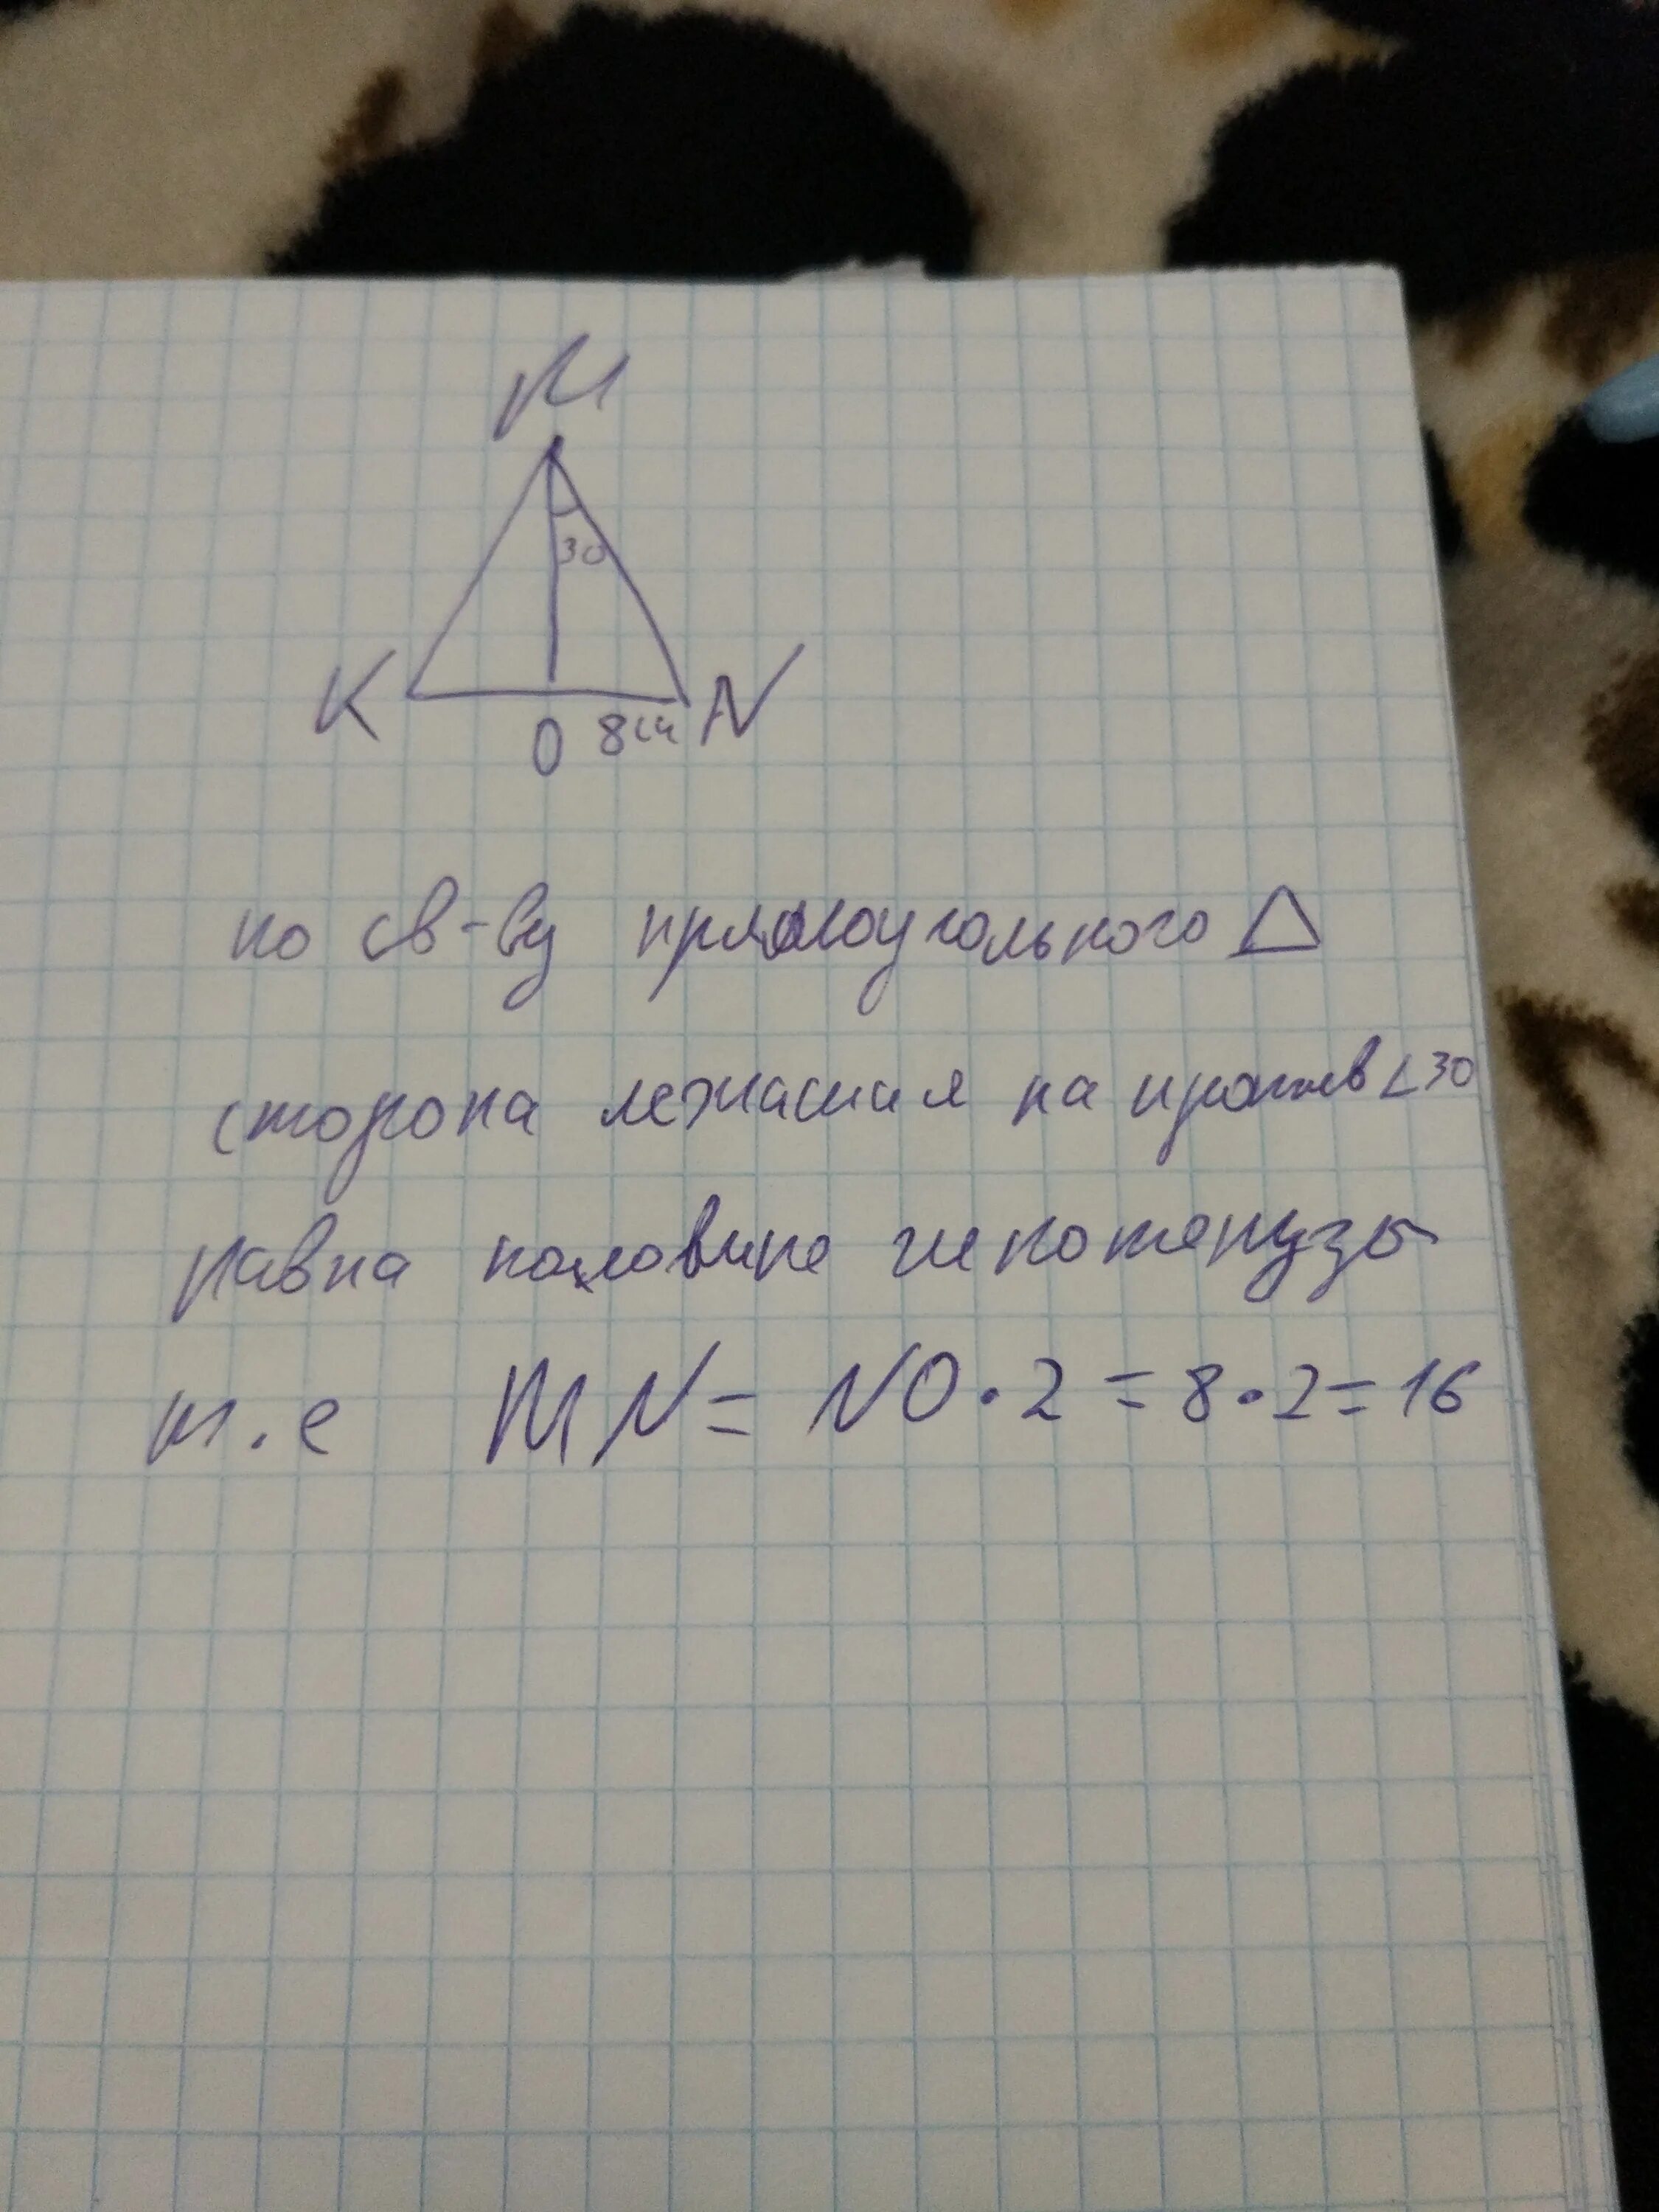 M
30
K
O 8см N
по св-ву прямоугольного △
сторона лежащая на против ∠30
равна половине гипотенузы
т.е MN = NO · 2 = 8 · 2 = 16